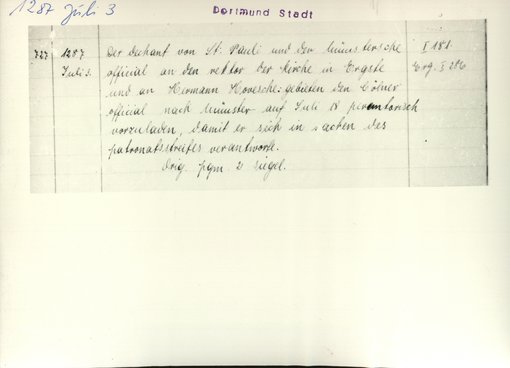 1287 Juli 3
Dortmund Stadt
727 1287 Der Dechant von St. Pauli und der münstersche I 181.
Juli 3. official an den rektor der kirche in Ergste Erg. I 286
und an Hermann Hovesche: gebieten den Cölner
official nach Münster auf Juli 18 peremtorisch
vorzuladen, damit er sich in sachen des
patronatsstreites verantworte.
Orig. pgm. 2 siegel.